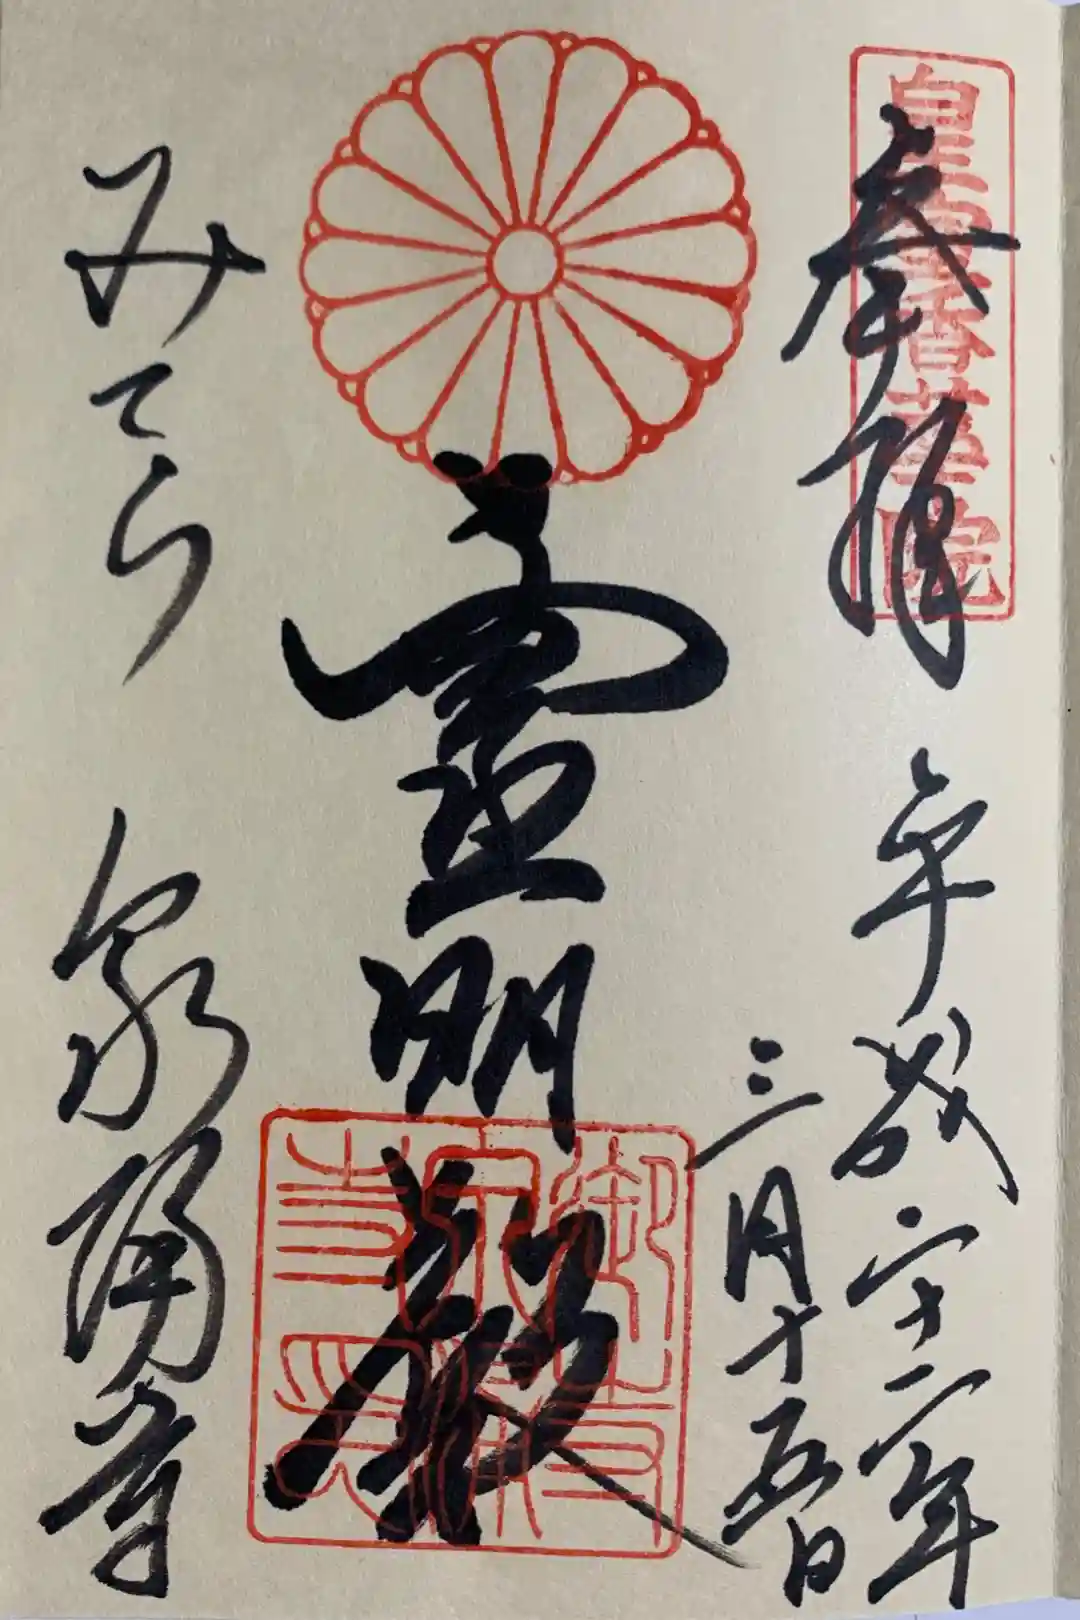 皇室香華院
奉拝
平成二十二年
三月十五日
霊明殿
御寺
泉涌
寺印
みてら 泉涌寺